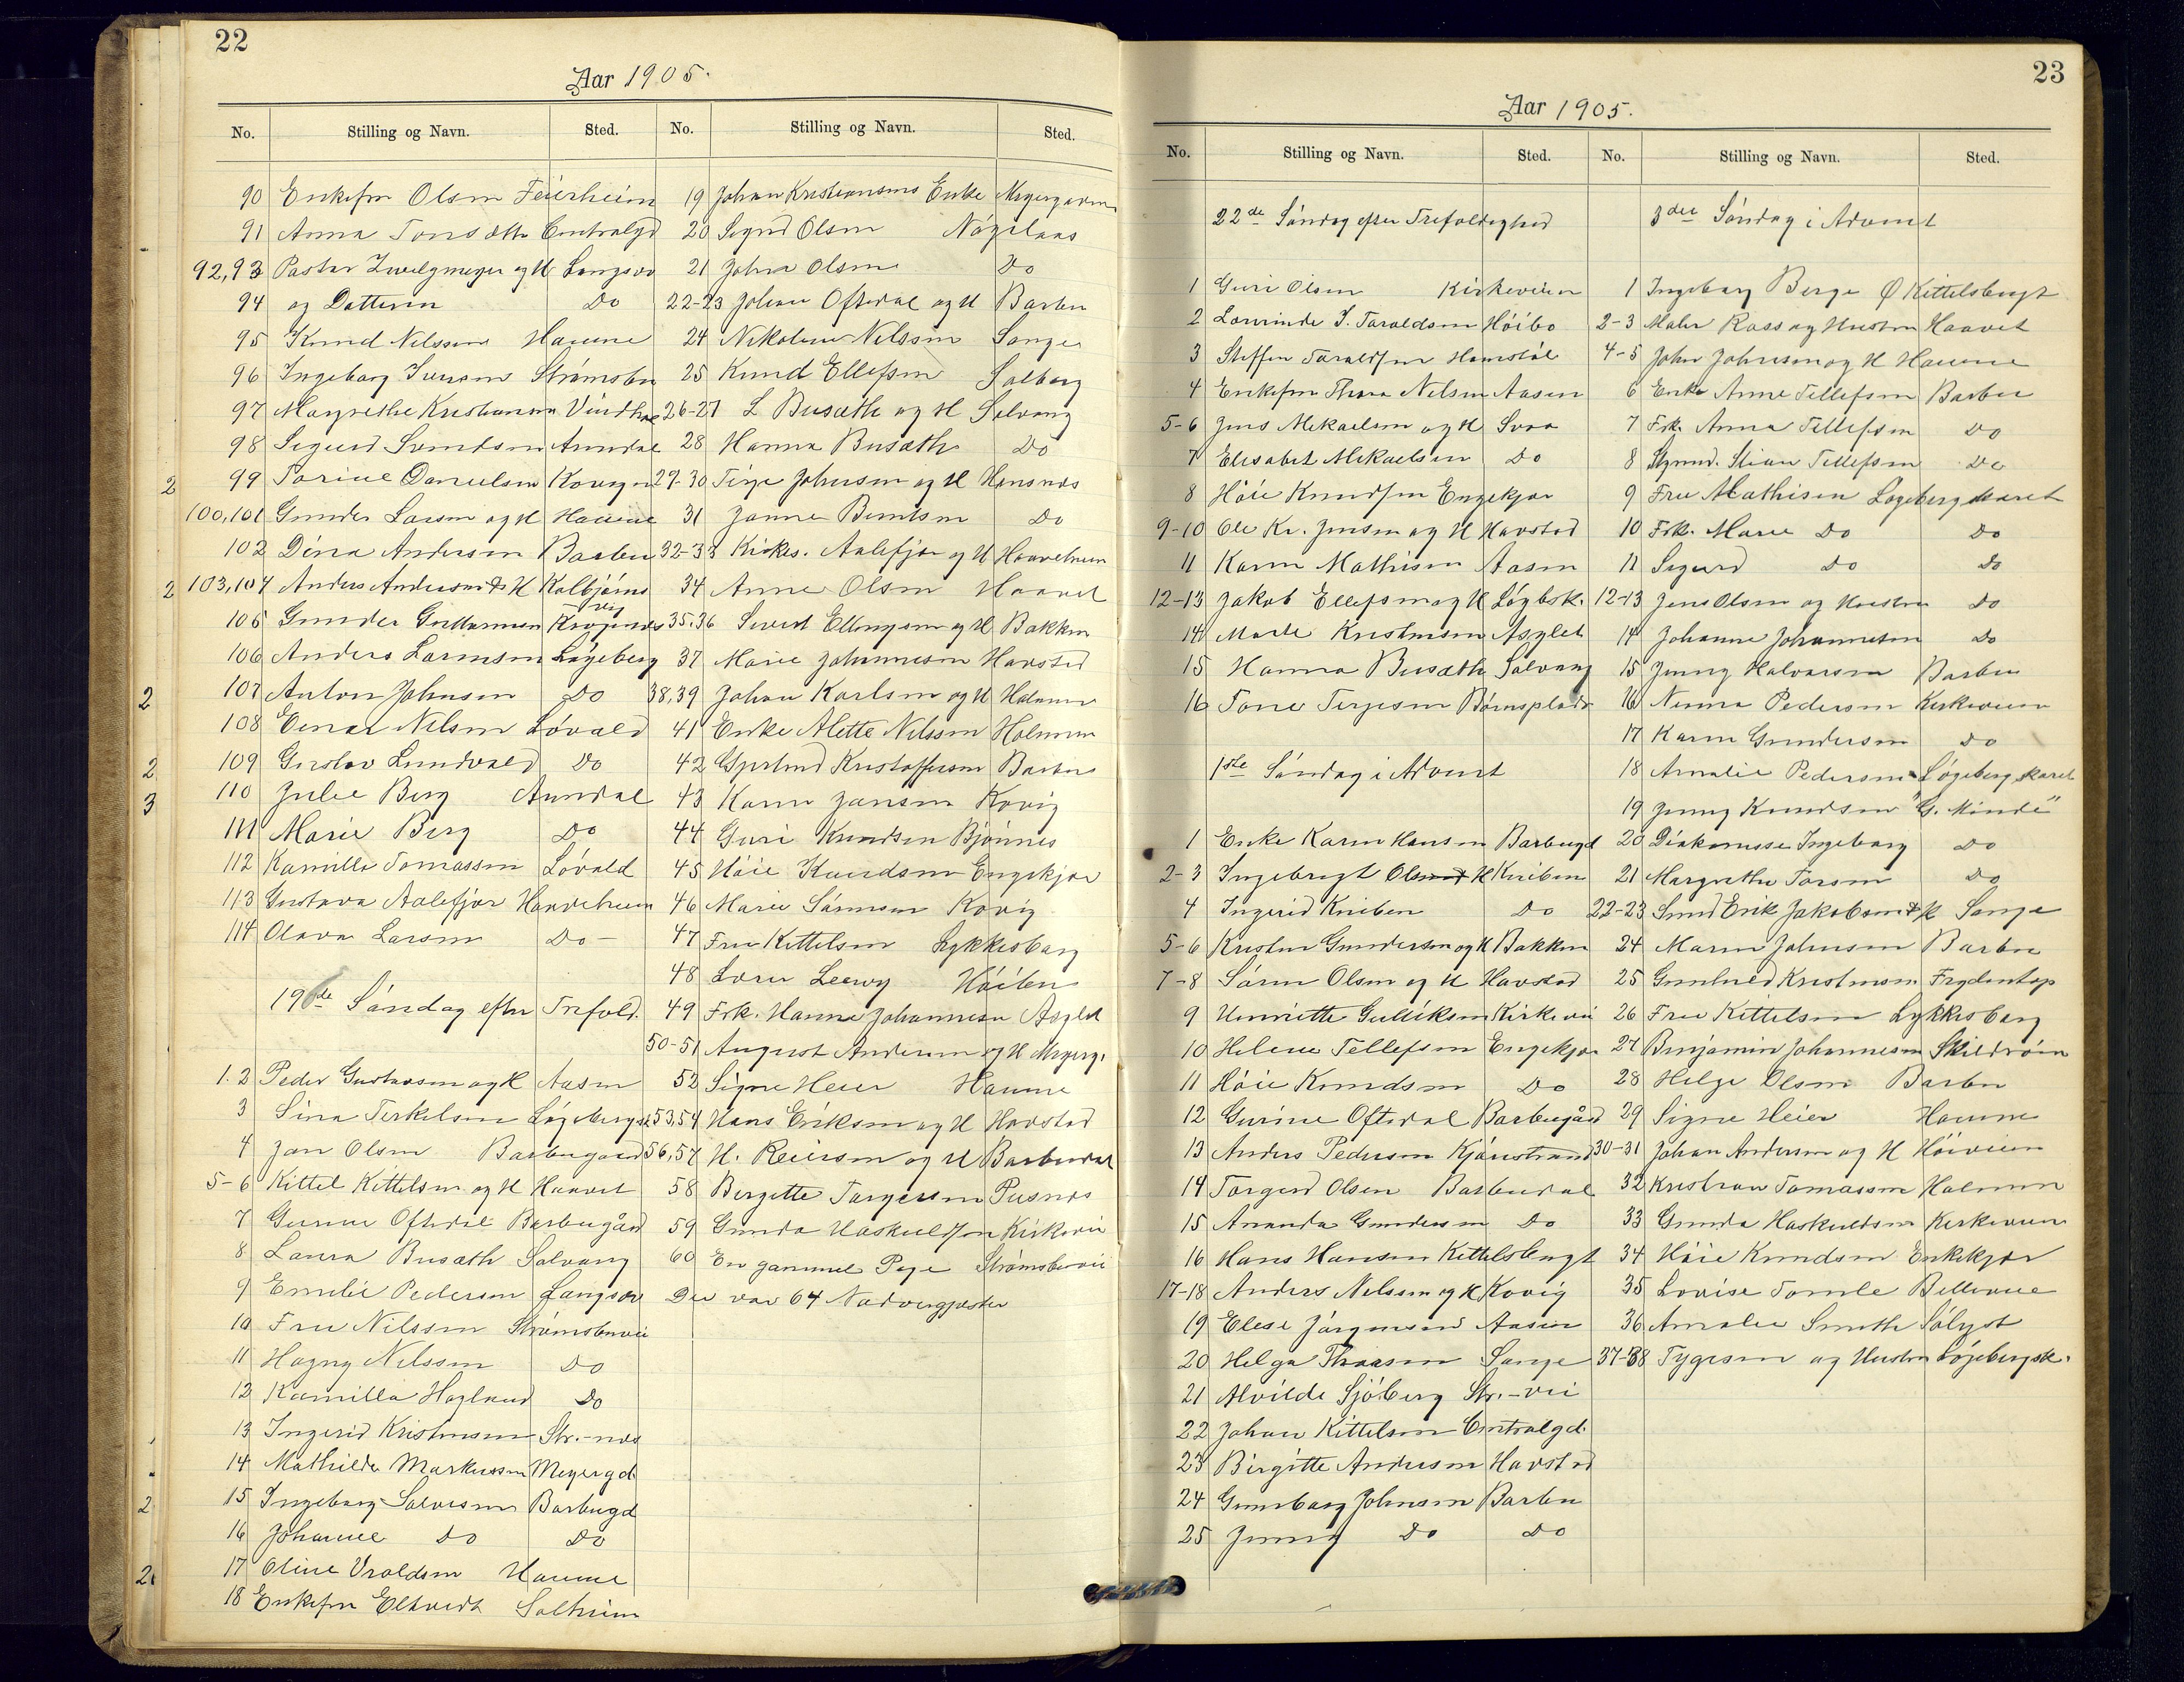 22
Aar 1905.
No. Stilling og Navn. Sted.
90 Enkefru Olsen Feierheim
91 Anna Tons dtr Centralgd
92,93 Pastor Zwilgmeyer og H Langsæ
94 og Datteren Do
95 Knud Nilssen Haune
96 Ingeborg Iversens Strømsbu
97 Margrethe Kristiansen Vindhol
98 Sigurd Svendsen Arendal
2 99 Torine Danielsen Kovigen
100,101 Gunder Larsen og H Haune
102 Dina Andersen Barbu
2 103,104 Anders Andersen & H Kolbjørns
vig
105 Gunder Guttormsen Krøgenes
106 Anders Larensen Løgeberg
2 107 Anton Johnsen Do
108 Einar Nilsen Løvald
2 109 Gustav Lundvald Do
3 110 Julie Berg Arendal
111 Marie Berg Do
112 Kamilla Tomassen Løvald
113 Gustava Aalefjær Haaveheim
114 Olava Larsen Do
19de Søndag efter Trefold.
1.2 Peder Gustavsen og H Aasen
3 Sina Terkelsen Løgebergsk
4 Jan Olsen Barbugaard
5-6 Kittel Kittelsen og H Haavet
7 Gurine Oftedal Barbugård
8 Laura Busæth Solvang
9 Emilie Pedersen Langsæ
10 Fru Nilssen Strømsbuvei
11 Hagny Nilssen Do
12 Kamilla Hagland Do
13 Ingerid Kristensen Str.-næs
14 Mathilde Markussen Meyergd
2 15 Ingeborg Salvesen Barbugd
16 Johanne Do Do
2 17 Oline Vraldsen Haune
18 Enkefru Eltvedt Solheim
No. Stilling og Navn. Sted.
19 Johan Kristiansens Enke Meyergaden
20 Sigrid Olsen Nøgelaas
21 Johan Olsen Do
22-23 Johan Oftedal og H Barbu
24 Nikoline Nilssen Sange
25 Knud Ellefsen Solborg
26-27 L Busæth og H Solvang
28 Hanna Busæth Do
29-30 Terje Johnsen og H Hansnæs
31 Janne Berntsen Do
32-33 Kirkes. Aalefjær og H Haaveheim
34 Anne Olsen Haavet
35.36 Sivert Ellingsen og H Bakken
37 Marie Johannesen Havsted
38,39 Johan Karlsen og H Holmen
41 Enke Alette Nilssen Holmen
42 Gjerlrud Kristoffersen Barbu
43 Karen Jansen Kovig
44 Guri Knudsen Bjønnes
45 Høie Knudsen Engekjær
46 Marie Sørensen Kovig
47 Fru Kittelsen Lykkesborg
48 Høibø
49 Frk. Hanna Johannesen Asylet
50-51 August Andersen og H Meyerg.
52 Signe Heier Haune
53,54 Hans Eriksen og H Havstad
56,57 H. Reiersen og H Barbudal
58 Bergitte Torgersen Pusnæs
59 Gunda Haskuldsen Kirkevei
60 En gammel Pige Strømsbuvei
Der var 64 Nadvergjæster
23
Aar 1905.
No. Stilling og Navn. Sted.
22de Søndag efter Trefoldighed
1 Guri Olsen Kirkeveien
2 Lovrinde J. Taraldsen Høibo
3 Steffen Taraldsen Hamstøl
4 Enkefru Thora Nilsen Aasen
5-6 Jens Mekaelsen og H Svaa
7 Elisabet Mekaelsen Do
8 Høie Knudsen Engekjær
9-10 Ole Kr. Jensen og H Havstad
11 Karen Mathisen Aasen
12-13 Jakob Ellefsen og H Løgbsk.
14 Marte Kristensen Asylet
15 Hanna Busæth Solvang
16 Tone Terjesen Bjørnsplads
1ste Søndag i Advent
1 Enke Karen Hansen Barbugd
2-3 Ingebregt Olsen & H Kniben
4 Ingerid Kniben Do
5-6 Kristen Gundersen og H Bakken
7-8 Søren Olsen og H Havstad
9 Henriette Gulliksen Kirkevei
10 Helene Tellefsen Engekjær
11 Høie Knudsen Do
12 Gurine Oftedal Barbugård
13 Anders Pedersen Kjørstrand
14 Torgerd Olsen Barbudal
15 Ananda Gundersen Do
16 Hans Hansen Kittelsbugt
17-18 Anders Nelssen og H Kovig
19 Elese Jørgensen Aasen
20 Helga Thaasen Sange
21 Alvilde Sjøberg Str.-vei
22 Johan Kittelsen Centralgd.
23 Birgitte Andersen Havstad
24 Gunborg Johnsen Barbu
25 Jenny Do Do
No. Stilling og Navn. Sted.
3die Søndag i Advent
1 Ingeborg Berge Ø Kittelsbugt
2-3 Maler Rass og Hustru Haavet
4-5 John Johnsen og H Haune
6 Enke Anne Tellefsen Barbu
7 Frk. Anna Tellefsen Do
8 Styrmd. Stian Tellefsen Do
9 Fru Mathisen Løgebergskaret
10 Frk. Marie Do Do
11 Sigurd Do Do
12-13 Jens Olsen og Hustru Do
14 Johanne Johannesen Do
15 Jenny Halvorsen Barbu
16 Nenna Pedersen Kirkeveien
17 Karen Gundersen Do
18 Amalie Pedersen Løgebergskaret
19 Jenny Knudsen "G. Minde"
20 Diakonisse Ingeborg Do
21 Margrethe Torsen Do
22-23 Smed Erik Jakobsen & H Sange
24 Maren Johnsen Barbu
25 Gunhild Kristensen Frydentop
26 Fru Kittelsen Lykkesborg
27 Benjamin Johannesen Skildrøin
28 Helge Olsen Barbu
29 Signe Heier Haune
30-31 Johan Andersen og H Høiveien
32 Kristian Tomassen Holmen
33 Gunda Haskuldsen Kirkeveien
34 Høie Knudsen Enkekjær
35 Lovise Tomle Bellevue
36 Amalie Smith Sølyst
37-38 Tygesen og Hustru Løjebergsk.